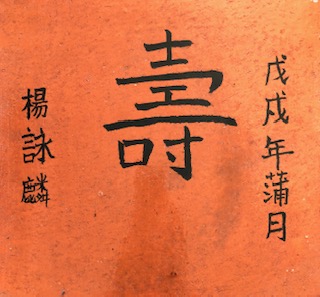 戊戌年蒲月
壽
楊詠麟